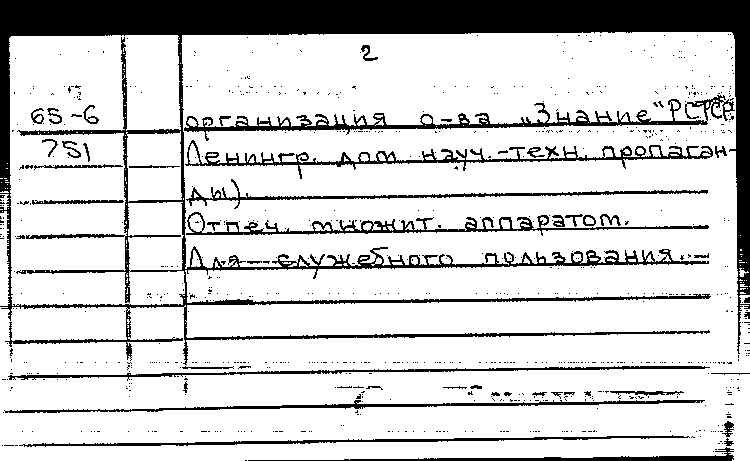 2
65-6
751
организация о-ва „Знание" РСФСР
Ленингр. дом науч.-техн. пропаган-
ды).
Отпеч. множит. аппаратом.
Для служебного пользования.